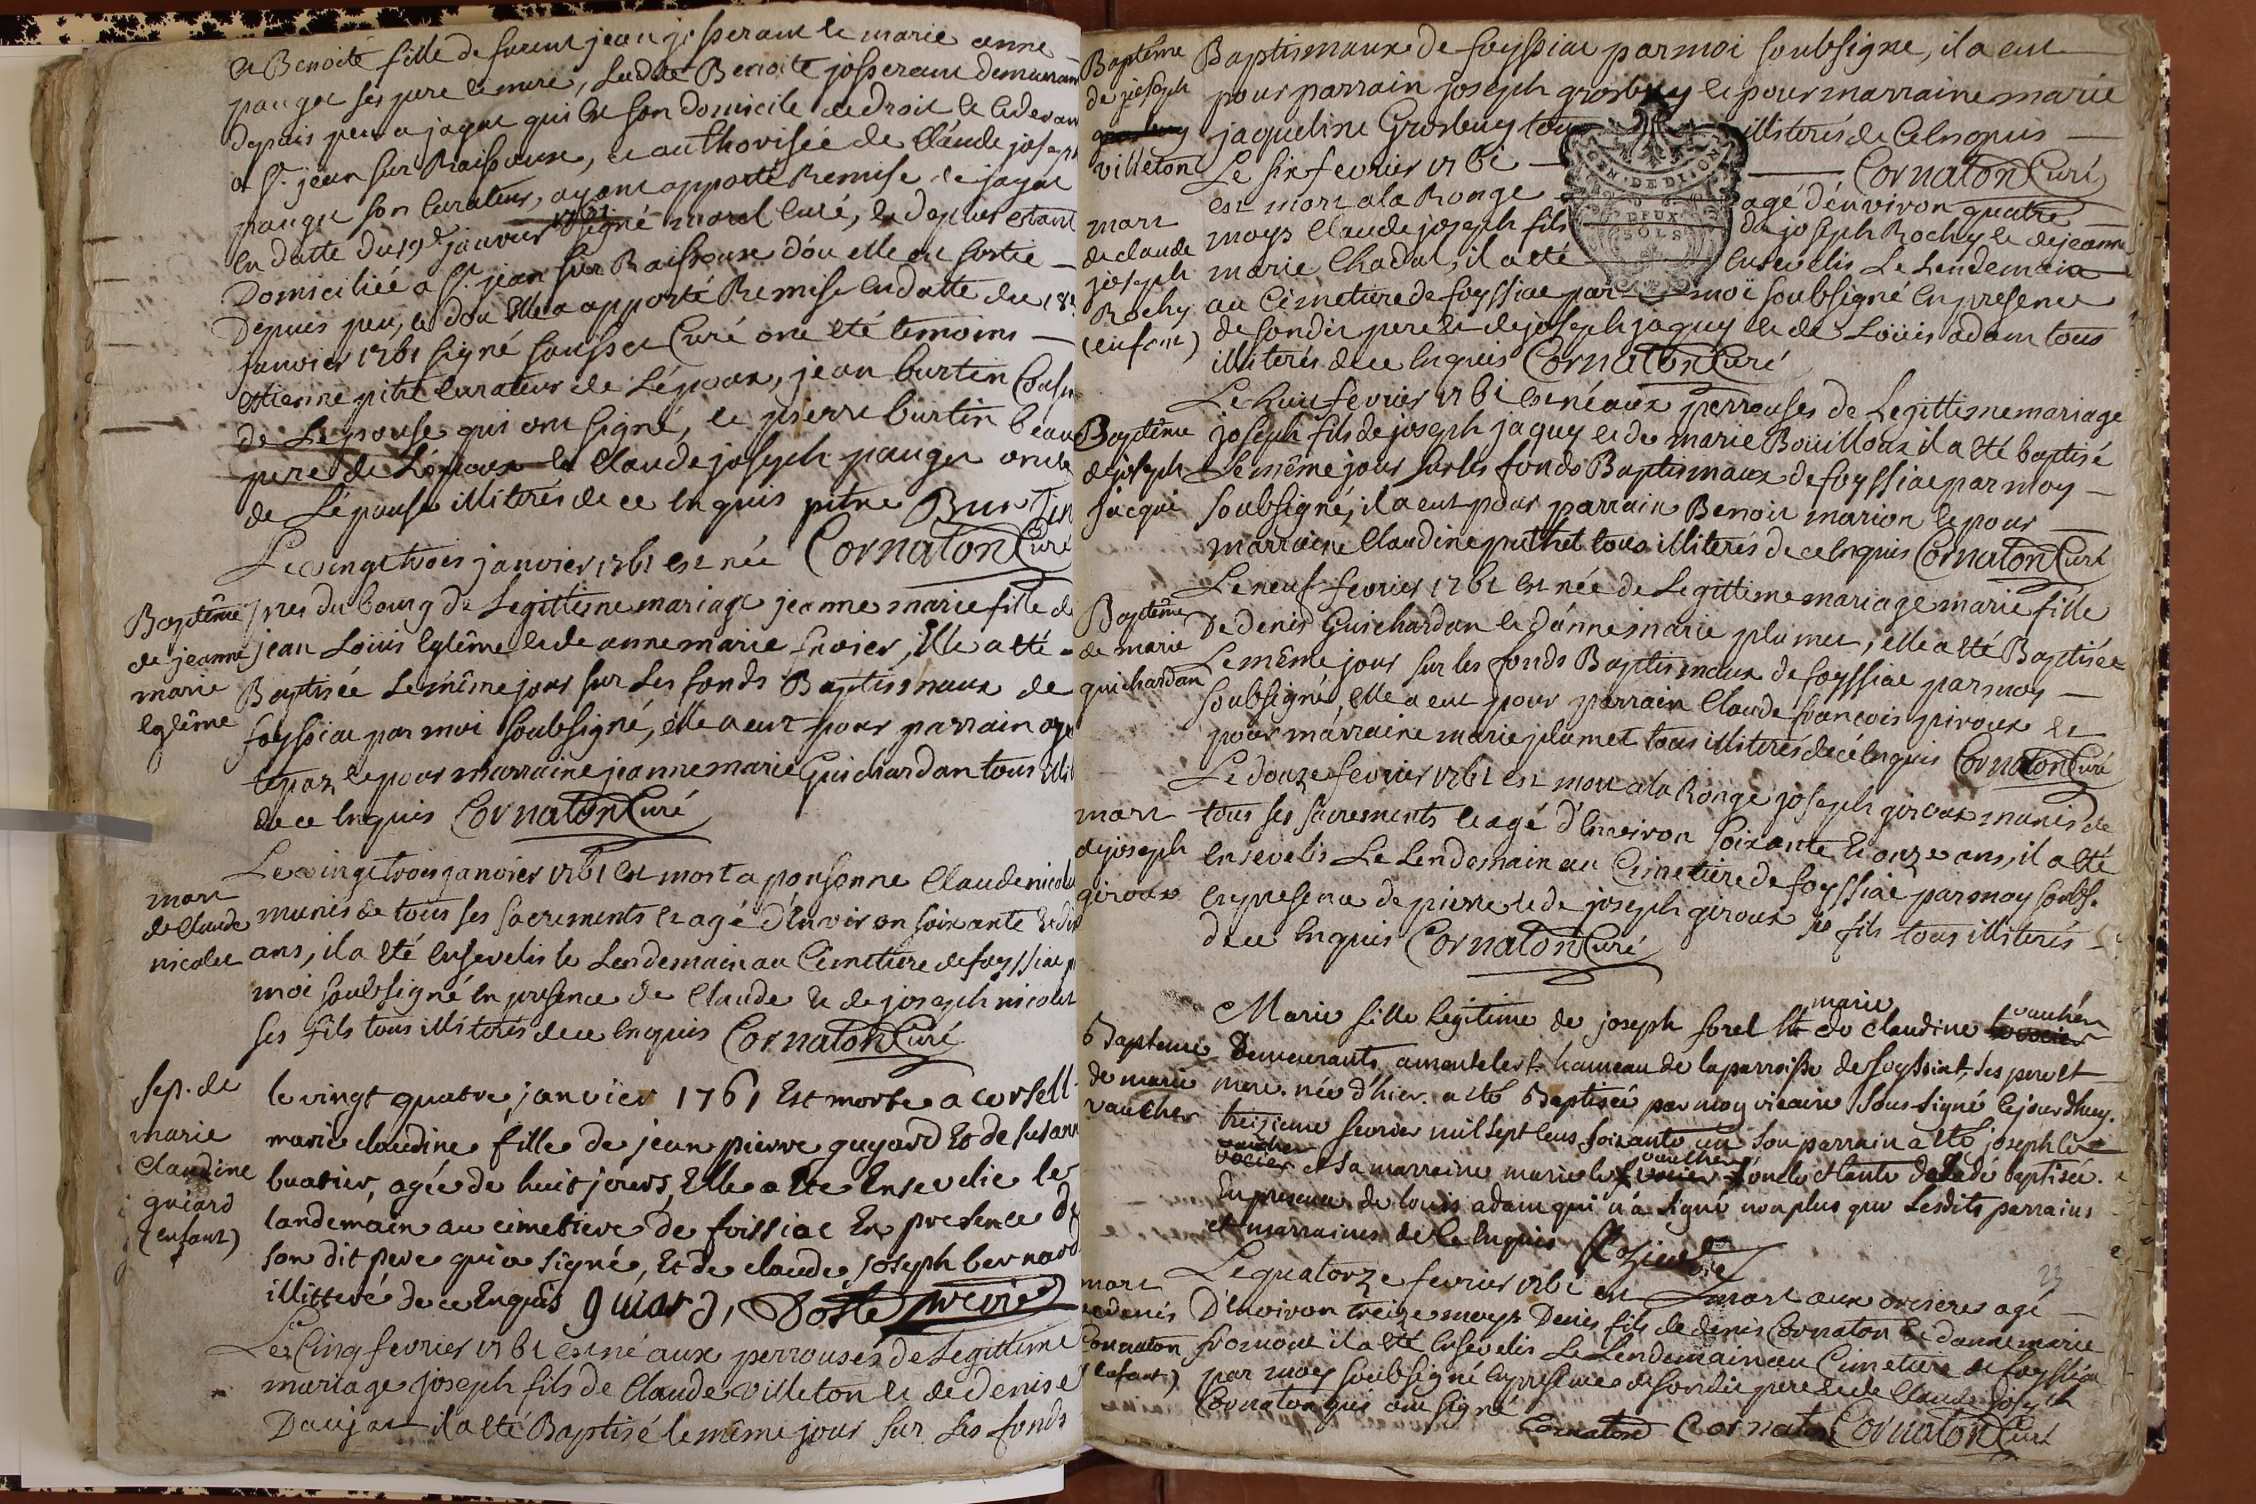 et Benoite fille de furent jean josserant et marie anne
pauget ses pere et mere, Ladite Benoite josserant demeurant
depuis peu a jayat qui est son domicile de droit et cedevant
a St. jean sur Raissouse, et authorisée de Claude joseph
pauget son Curateur, ayant apporté Remise de jayat
en datte du 19e janvier 1761 signé morel Curé, et depuis estant
Domiciliée a St. jean sur Raissouse d'ou elle est sortie
Depuis peu, et dou Elle a apporté Remise en datte du 18e
janvier 1761 signé sausset Curé ont eté temoins
estienne pitre Curateur de L'époux, jean burtin Cousin
de Lepouse qui ont signé, et pierre burtin beau
pere de L'époux et Claude joseph pauget oncle
de L'épouse illiterés de ce Enquis pitre Burtin
Cornaton Curé
Le vingt trois janvier 1761 est née
pres du bourg de Legittime mariage jeanne marie fille de
jean Loüis Eglême et de anne marie fuvier, Elle a eté
Baptisée Le même jour sur Les fonds Baptismaux de
foyssiac par moi soubsigné, elle a eut pour parrain
et pour marraine jeanne marie Guichardan tous
de ce Enquis Cornaton Curé
Baptême
de jeanne
marie
Eglême
Le vingt trois janvier 1761 est mort a ponsonne Claude nicolet
munis de tous ses sacrements et agé d'Environ soixante et dix
ans, il a eté Ensevelis le Lendemain au Cimetiere de foyssiac
moi soubsigné en presence de Claude et de joseph nicolet
ses fils tous illiterés de ce Enquis Cornaton Curé
mort
de Claude
nicolet
le vingt quatre janvier 1761 Est morte a
marie claudine fille de jean pierre guyard Et de susanne
buatier, agée de huit jours, Elle a Ete Ensevelie le
landemain au cimetiere de foissiac En presence de
son dit pere qui a signé, Et de claude joseph bernard
illitteré de ce Enquis guiard,
sep. de
marie
Claudine
guiard
(enfant)
Le Cinq fevrier 1761 est né aux perrouses de Legittime
mariage joseph fils de Claude villeton et de denise
Daujat il a eté Baptisé le même jour sur Les fonds
Baptême
de joseph
villeton
Baptismaux de foyssiac par moi soubsigné, il a eut
pour parrain joseph grosbuy et pour marraine marie
jaqueline Grosbuy tous illiterés de ce Enquis
Cornaton Curé
GEN·DE DIJON
DEUX
SOLS
Le six fevrier 1761
est mort a la Ronge agé d'environ quatre
moys Claude joseph fils de joseph Rochy et de jeanne
marie Chadal, il a eté Ensevelis Le Lendemain
au Cimetiere de foyssiac par moi soubsigné En presence
de sondit pere et de joseph jaguy et de Loüis adam tous
illiterés de ce Enquis Cornaton Curé
mort
de claude
joseph
Rochy
(enfant)
Le huit fevrier 1761 est né aux perrouses de Legittime mariage
joseph fils de joseph jaguy et de marie Bouilloux il a eté baptisé
Le même jour sur les fonds Baptismaux de foyssiac par moy
soubsigné, il a eut pour parrain Benoit marion et pour
marraine Claudine puthet tous illiterés de ce Enquis Cornaton Curé
Baptême
de joseph
jacqui
Le neuf fevrier 1761 est née de Legittime mariage marie fille
De denis Guichardan et d'anne marie plumet, elle a eté Baptisée
Le même jour sur les fonds Baptismaux de foyssiac par moy
soubsigné, elle a eut pour parrain Claude françois piroux et
pour marraine marie plumet tous illiterés de cé Enquis Cornaton Curé
Baptême
de marie
guichardan
Le douze fevrier 1761 est mort a la Ronge joseph giroux munis de
tous ses sacrements et agé d'Environ soixante et onze ans, il a eté
Ensevelis Le Lendemain au Cimetiere de foyssiac par moy soubs.
En presence de pierre et de joseph giroux ses fils tous illiterés
de ce Enquis Cornaton Curé
mort
de joseph
giroux
Marie fille legitime de joseph sorel et de marie claudine vauchér
Demeurants a hameau de la parroisse de foyssiat, ses pere et
mere. née d'hier. a eté Baptisée par moy vicaire soussigné cejourdhuy.
treizieme fevrier mil sept cens soixante un son parrain a eté joseph
vaucher et sa marraine marie vaucher oncle et tante de ladé baptisée.
En presence de louis adam qui n'a signé non plus que lesdits parrains
et marraines de Ce Enquis
Bapteme
de marie
vaucher
Le quatorze fevrier 1761 est mort aux oriseres agé
D'Environ treize moys Denis fils de denis Cornaton et d'anne marie
fromont il a eté Ensevelis Le Lendemain au Cimetiere de foyssiac
par moy soubsigné En presence de sondit pere et de Claude joseph
Cornaton qui ont signé
Cornaton Cornaton Cornaton Curé
mort
de denis
Cornaton
(enfant)
23